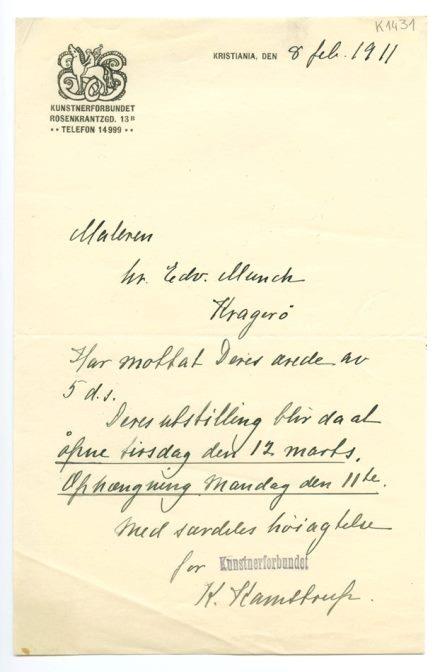 K1431
KRISTIANIA, DEN 8 feb. 1911
KUNSTNERFORBUNDET
ROSENKRANTZGD. 13 B
•• TELEFON 14999 ••
Maleren
hr. Edv. Munch
Kragerö
Har mottat Deres ærede av
5 d.s.
Deres utstilling blir da at
åpne tirsdag den 12 marts.
Ophængning Mandag den 11te.
Med særdeles höiagtelse
for Kunstnerforbundet
K. Kamstrup.